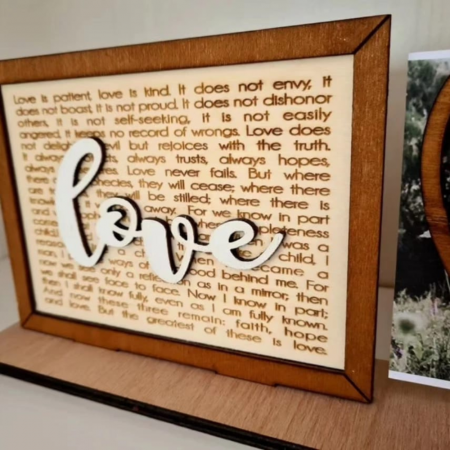 Love is patient, love is kind. It does not envy, it
does not boast, it is not proud. It does not dishonor
others, it is not self-seeking, it is not easily
angered, it keeps no record of wrongs. Love does
not delight evil but rejoices with the truth.
It always trusts, always hopes,
always Love never fails. But where
there they will cease; where there
are they will be stilled; where there is
away. For we know in part
and
was a
child, I
became a
man, I ways of behind me. For
we shall see only a reflection as in a mirror; then
we shall see face to face. Now I know in part;
then I shall know fully, even as I am fully known.
And now these three remain: faith, hope
and love. But the greatest of these is love.
love